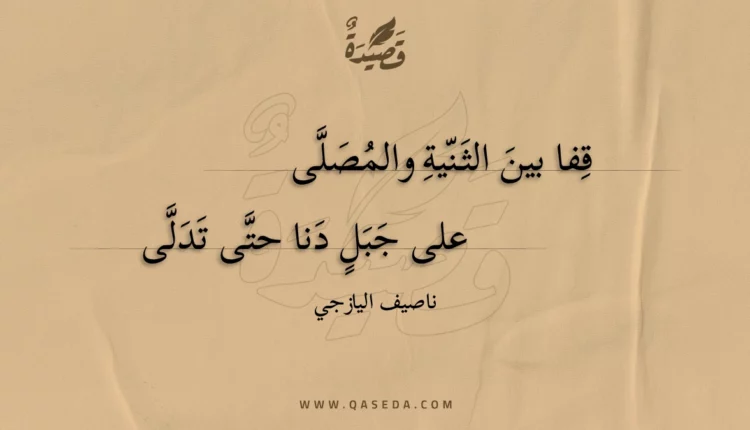 قَصِيدَةٌ
قِفا بينَ الثَنّيةِ والمُصَلَّى
على جَبَلٍ دَنا حتَّى تَدَلَّى
ناصيف اليازجي
WWW.QASEDA.COM